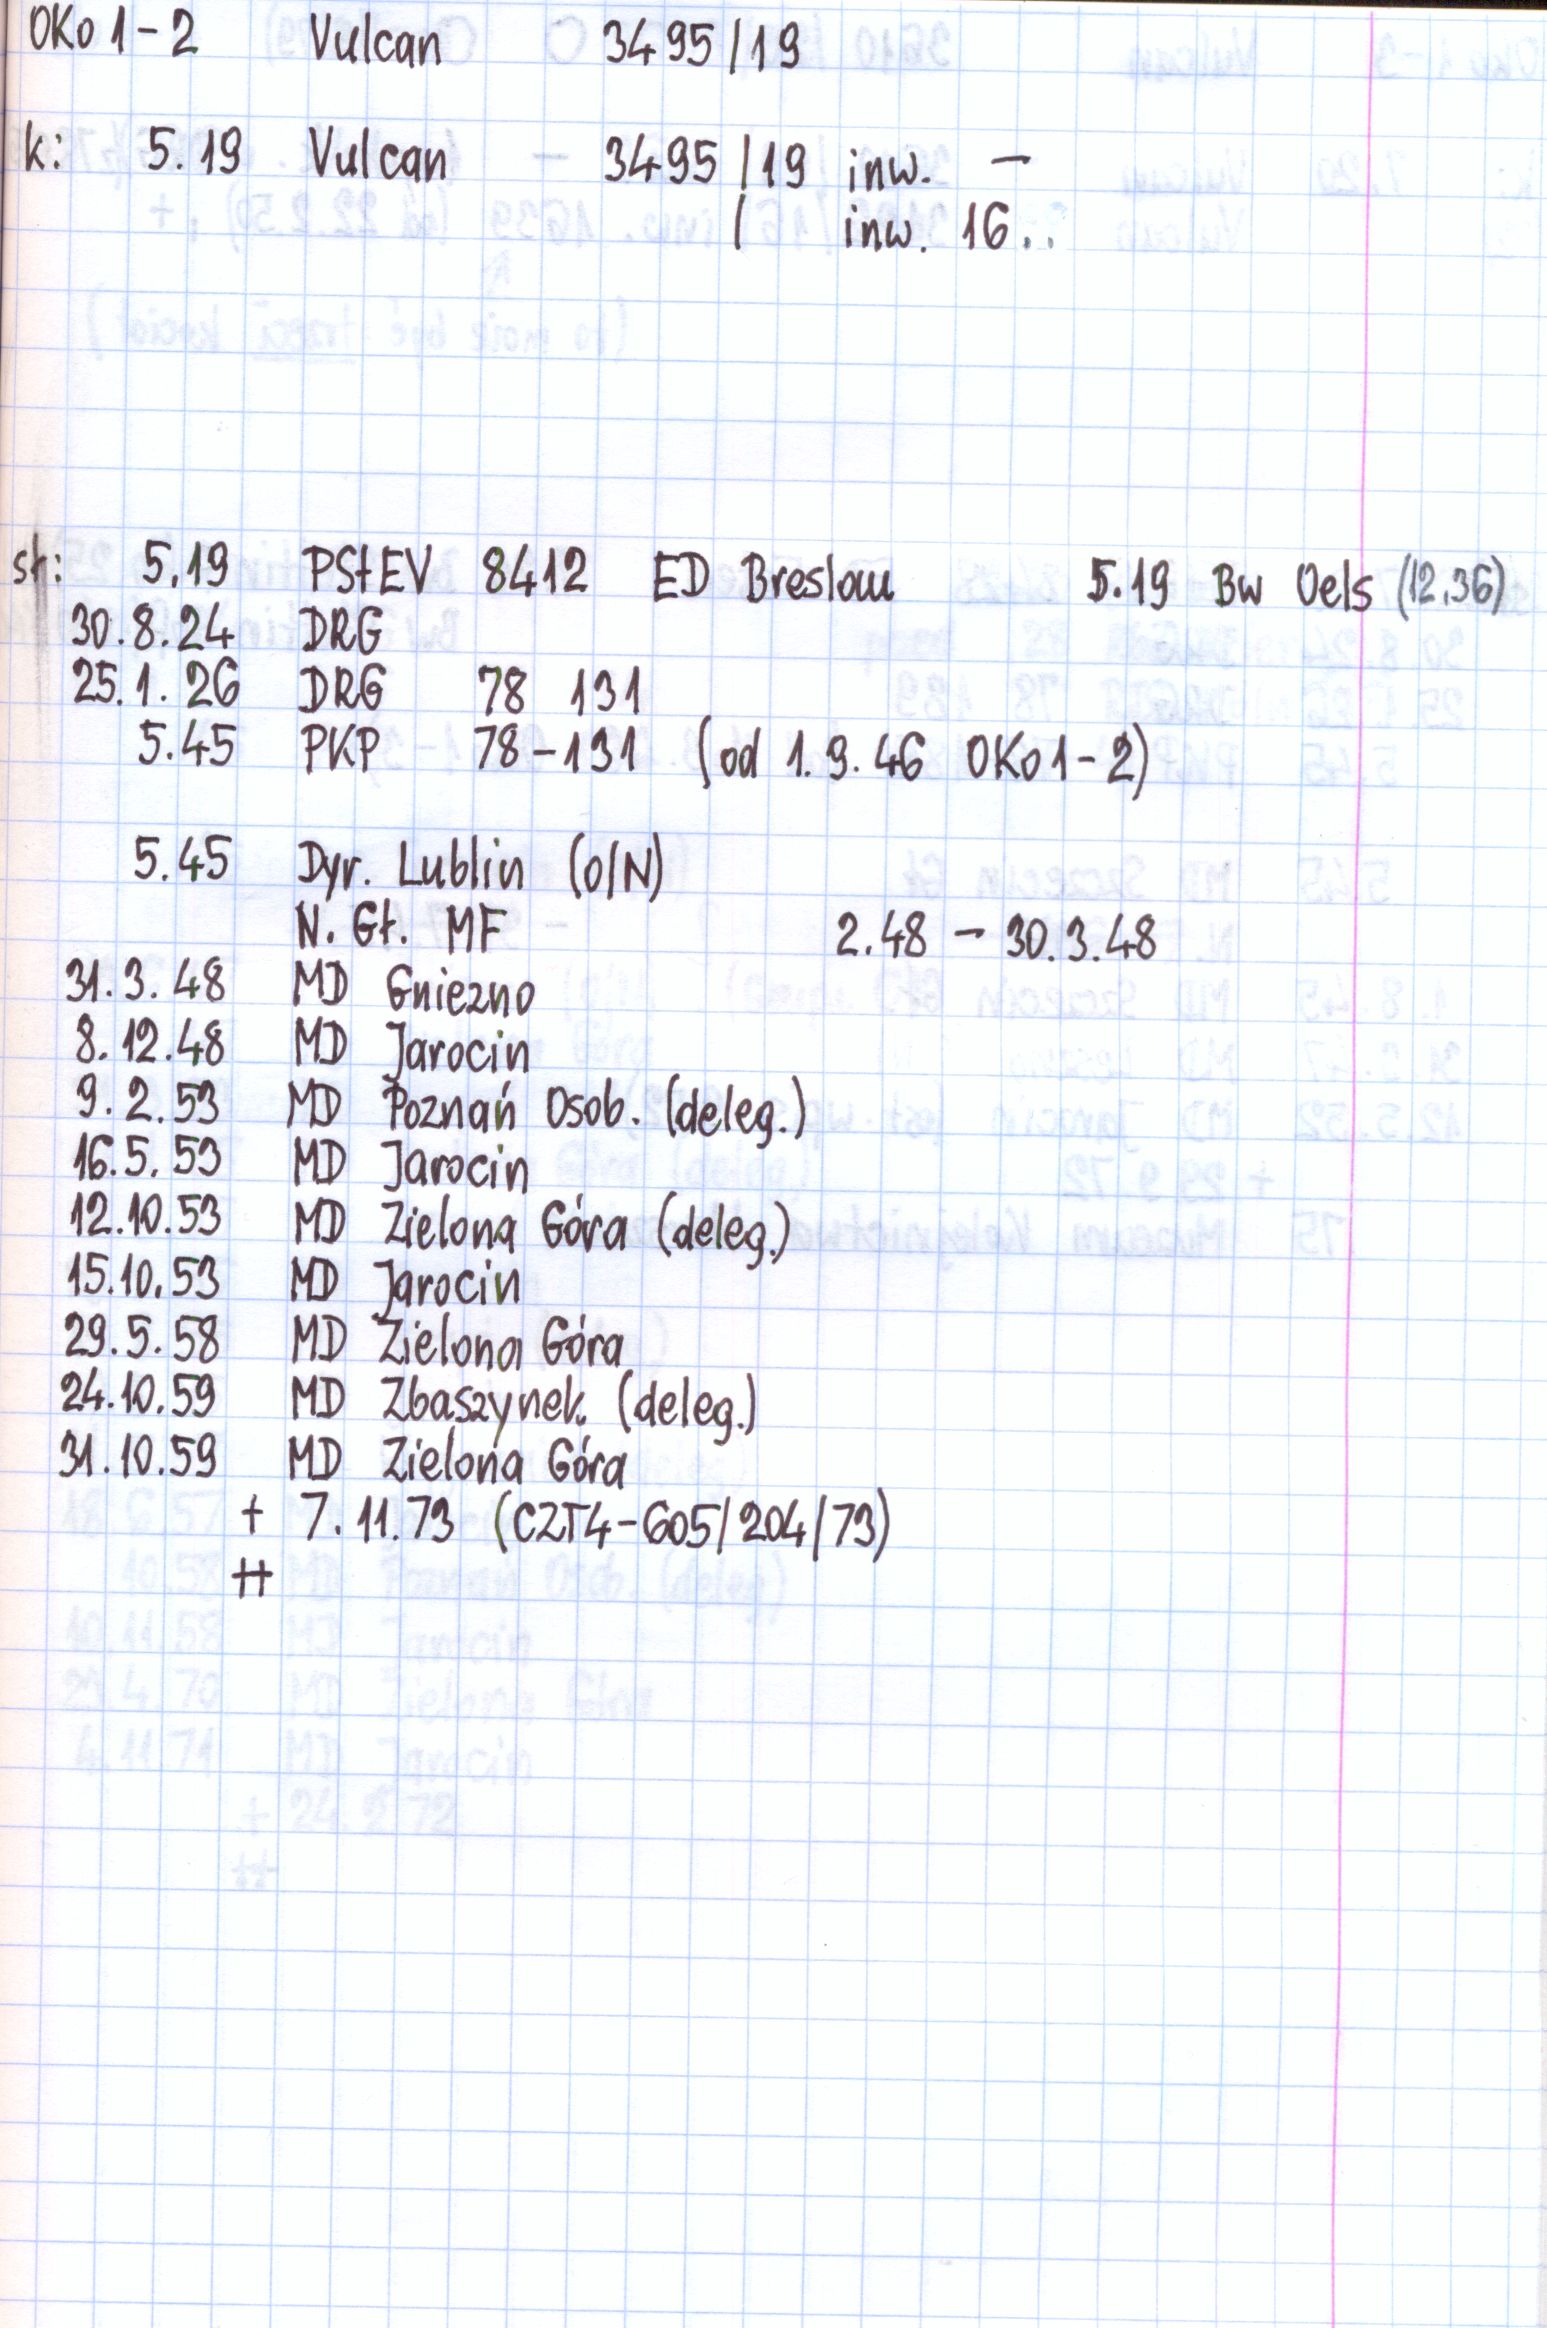 OKo1-2 Vulcan 3495/19
k: 5.19 Vulcan - 3495/19 inw. -
/ inw. 16..
st: 5.19 PStEV 8412 ED Breslau 5.19 Bw Oels (12.36)
30.8.24 DRG
25.1.26 DRG 78 131
5.45 PKP 78-131 (od 1.9.46 OKo1-2)
5.45 Dyr. Lublin (O/N)
N. Gł. MF 2.48 - 30.3.48
31.3.48 MD Gniezno
8.12.48 MD Jarocin
9.2.53 MD Poznań Osob. (deleg.)
16.5.53 MD Jarocin
12.10.53 MD Zielona Góra (deleg.)
15.10.53 MD Jarocin
29.5.58 MD Zielona Góra
24.10.59 MD Zbaszynek (deleg.)
31.10.59 MD Zielona Góra
+ 7.11.73 (CZT4-605/204/73)
++